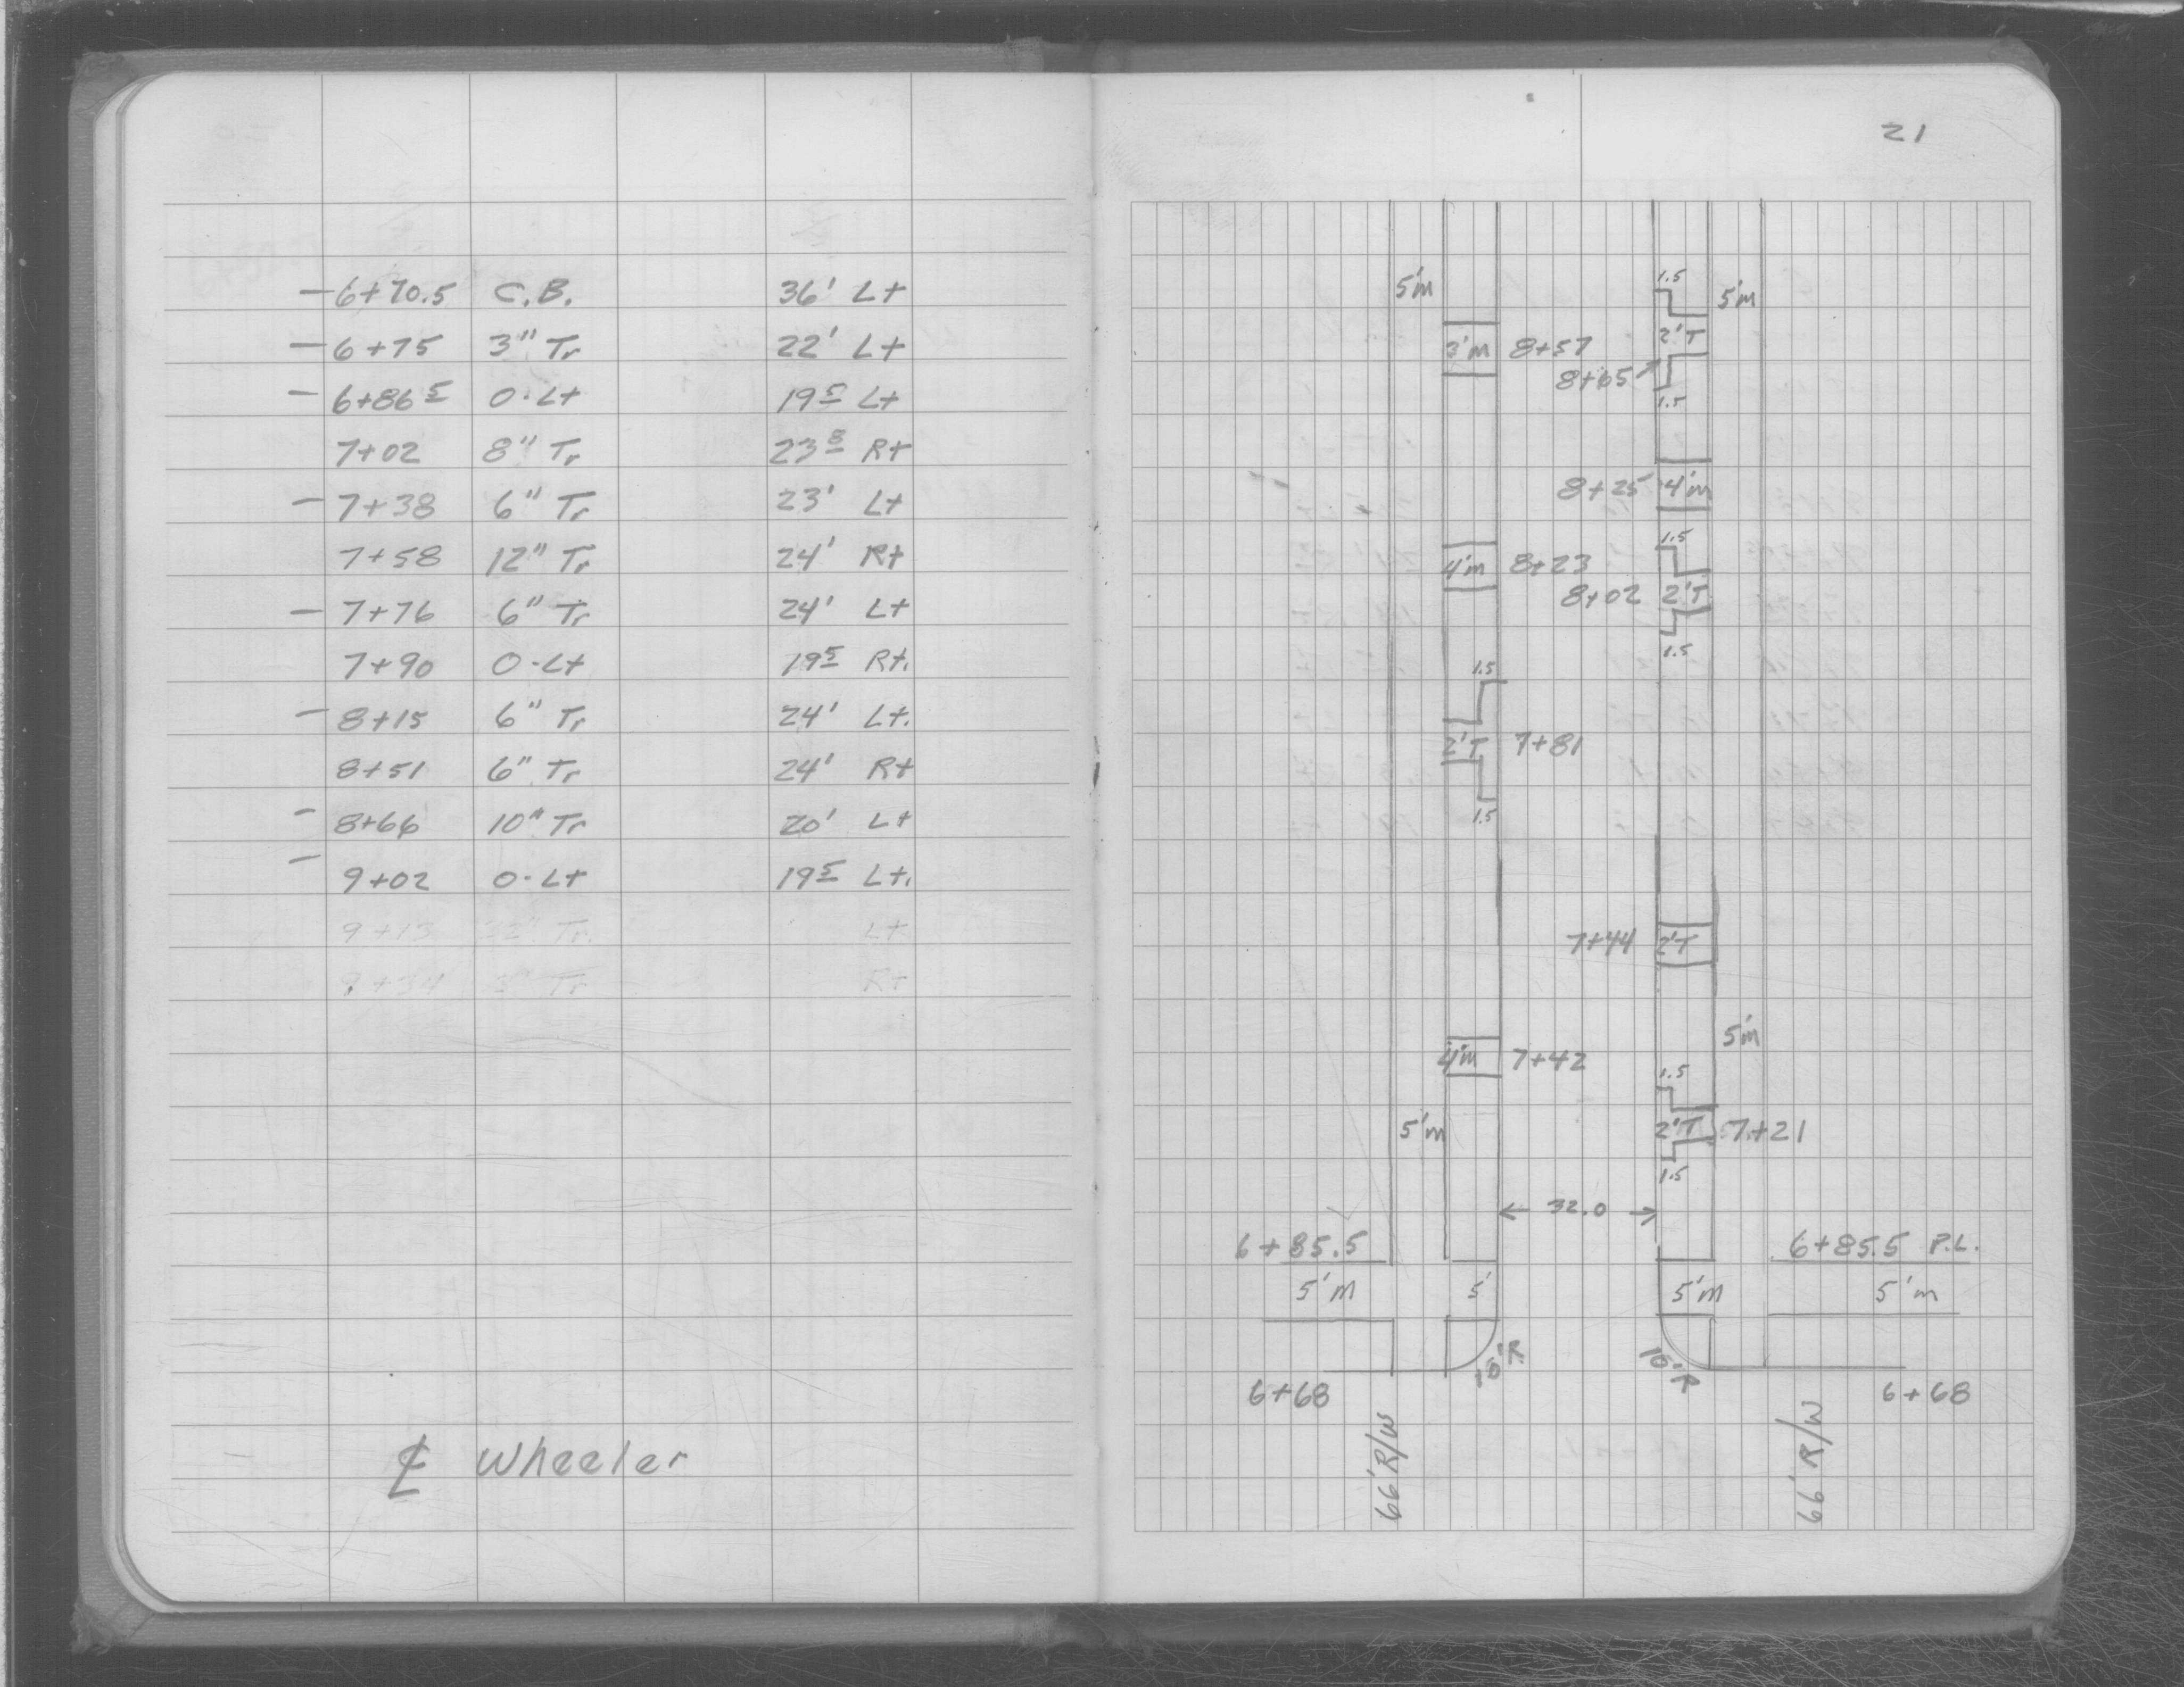 — 6+70.5 C.B. 36' Lt
— 6+75 3" Tr 22' Lt
— 6+86 5 O-Lt 19 5 Lt
7+02 8" Tr 23 8 Rt
— 7+38 6" Tr 23' Lt
7+58 12" Tr 24' Rt
— 7+76 6" Tr 24' Lt
7+90 O-Lt 19 5 Rt.
— 8+15 6" Tr 24' Lt.
8+51 6" Tr 24' Rt
— 8+66 10" Tr 20' Lt
— 9+02 O-Lt 19 5 Lt.
9+13 Tr. Lt
Tr Rt
℄ Wheeler
21
1.5
5'm 5'm
2'T
3'm 8+57
8+65
1.5
8+25 4'm
1.5
4'm 8+23
8+02 2'T
1.5
1.5
2'T 7+81
1.5
7+44 2'T
5'm
4'm 7+42
1.5
5'm 2'T 7+21
1.5
32.0
6+85.5 6+85.5 P.L.
5'm 5' 5'm 5'm
10'R 10'R
6+68 6+68
66' R/W 66' R/W